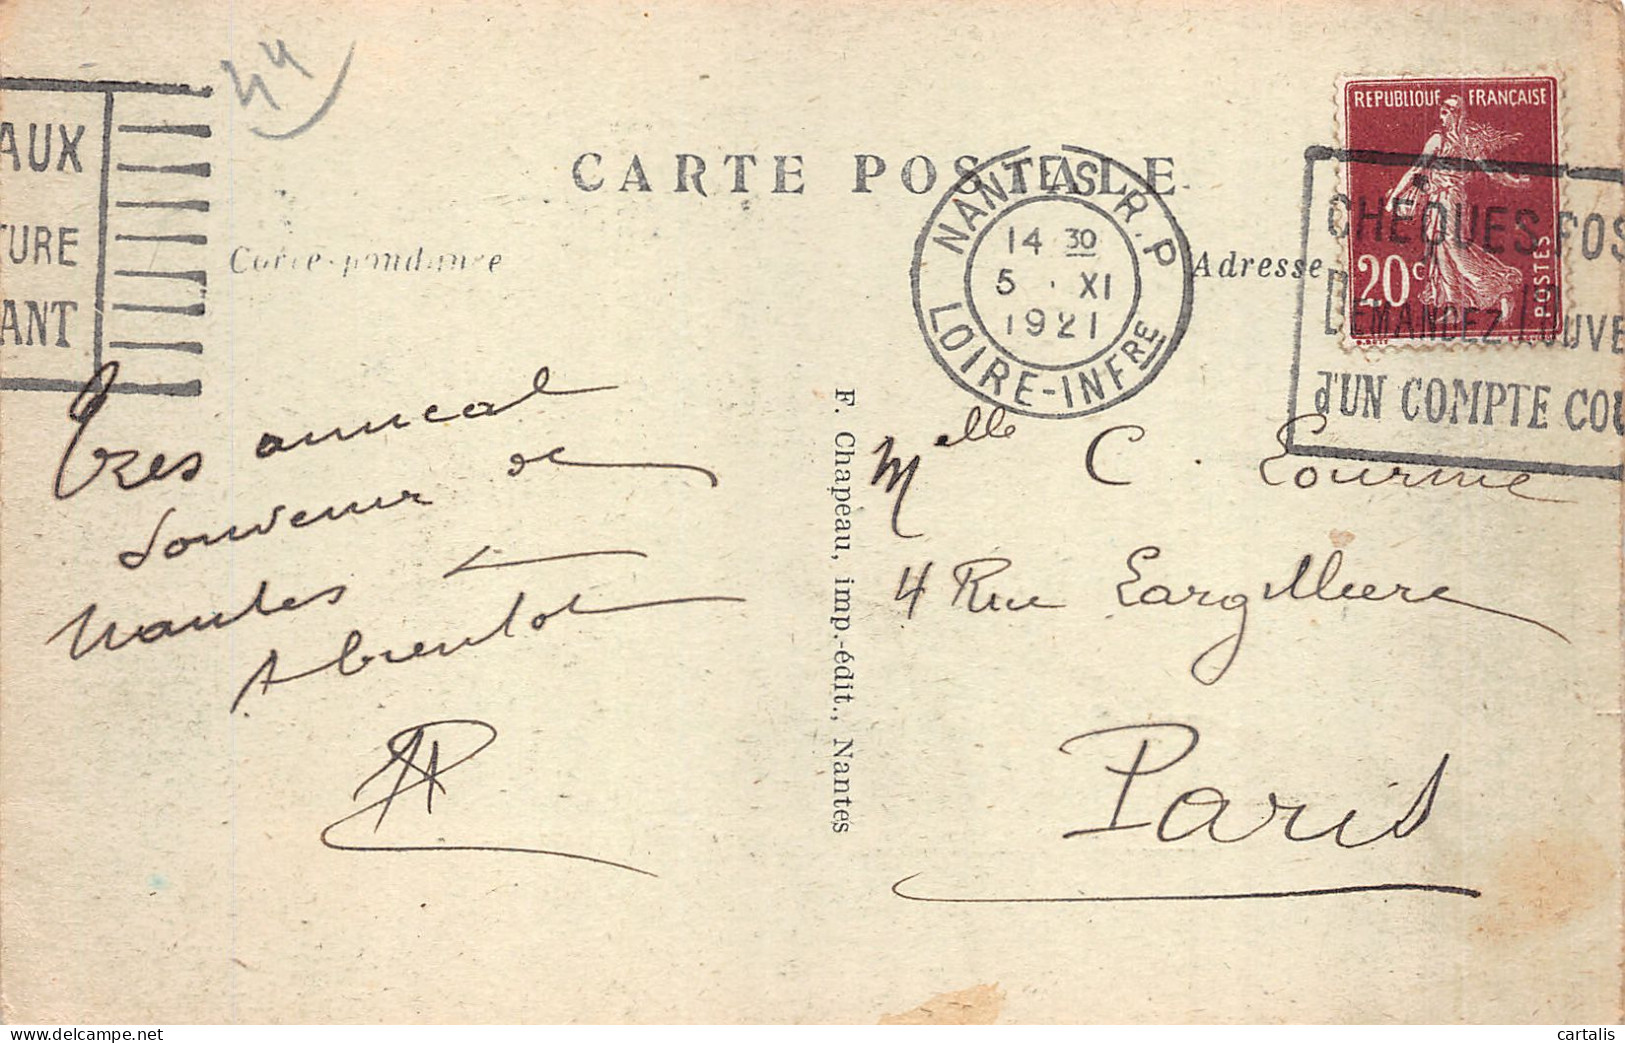 44
CARTE POSTALE
Correspondance
Adresse
REPUBLIQUE FRANÇAISE
20c
POSTES
NANTES R.P
14 30
5 . XI
1921
LOIRE-INFRE
AUX
TURE
ANT
CHEQUES POS
DEMANDEZ L'OUVE
d'UN COMPTE COU
Tres amical
Souvenir de
Nantes
A bientot
F. Chapeau, imp.-édit., Nantes
Melle C. Lourme
4 Rue Largilliere
Paris
cartalis